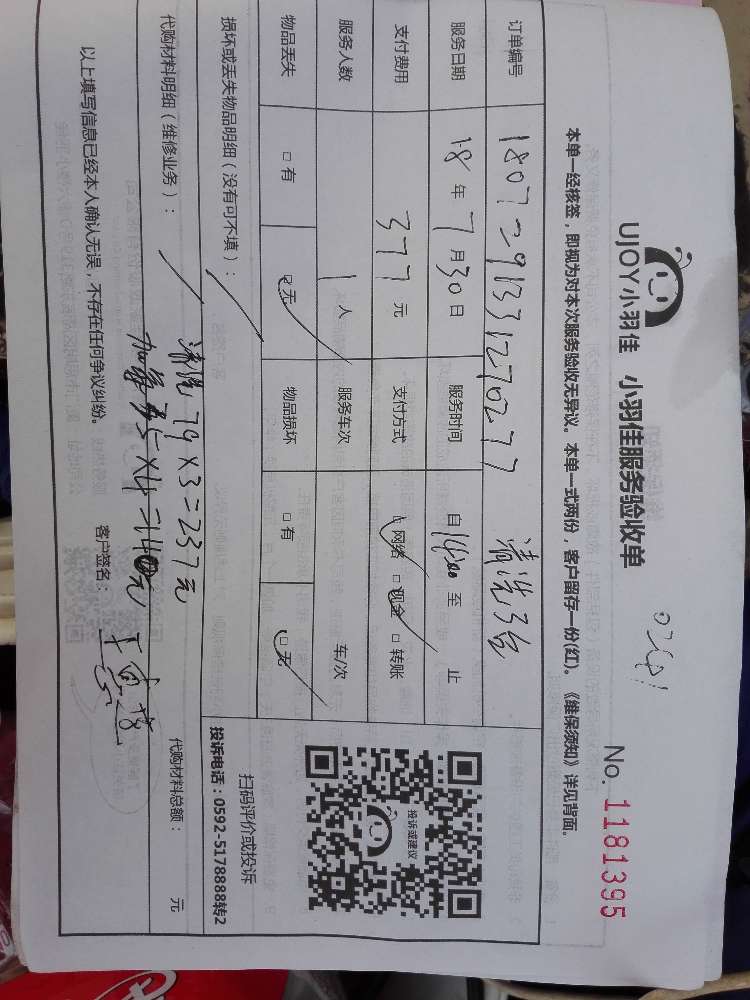 UJOY小羽佳 小羽佳服务验收单
No. 1181395
本单一经核签，即视为对本次服务验收无异议。本单一式两份，客户留存一份(红)。《维保须知》详见背面。
订单编号 1807291331270277 清洗3台
服务日期 18年7月30日 服务时间 自14:00至 止
支付费用 377元 支付方式 □网络 □现金 □转账
服务人数 1人 服务车次 车/次
物品丢失 □有 □无 物品损坏 □有 □无
损坏或丢失物品明细（没有可不填）：
投诉或建议
扫码评价或投诉
投诉电话：0592-5178888转2
代购材料明细（维修业务）： 清洗79×3=237元
35×4=140元
代购材料总额： 元
以上填写信息已经本人确认无误，不存在任何争议纠纷。 客户签名：